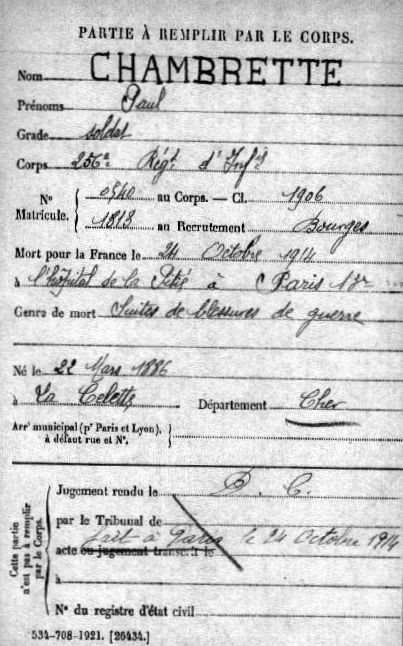 PARTIE À REMPLIR PAR LE CORPS.
Nom CHAMBRETTE
Prénoms Paul
Grade soldat
Corps 256e Régt d'Infie
Nº Matricule. { 0540 au Corps. — Cl. 1906
1818 au Recrutement Bourges
Mort pour la France le 24 Octobre 1914
à l'hôpital de la Pitié à Paris 13e
Genre de mort Suites de blessures de guerre
Né le 22 Mars 1886
à La Celette Département Cher
Arrt municipal (pr Paris et Lyon), à défaut rue et Nº.
Cette partie n'est pas à remplir par le Corps.
Jugement rendu le D. C.
par le Tribunal de
fait à Paris le 24 Octobre 1914
acte ou jugement transcrit le
à
Nº du registre d'état civil
534-708-1921. [26434.]